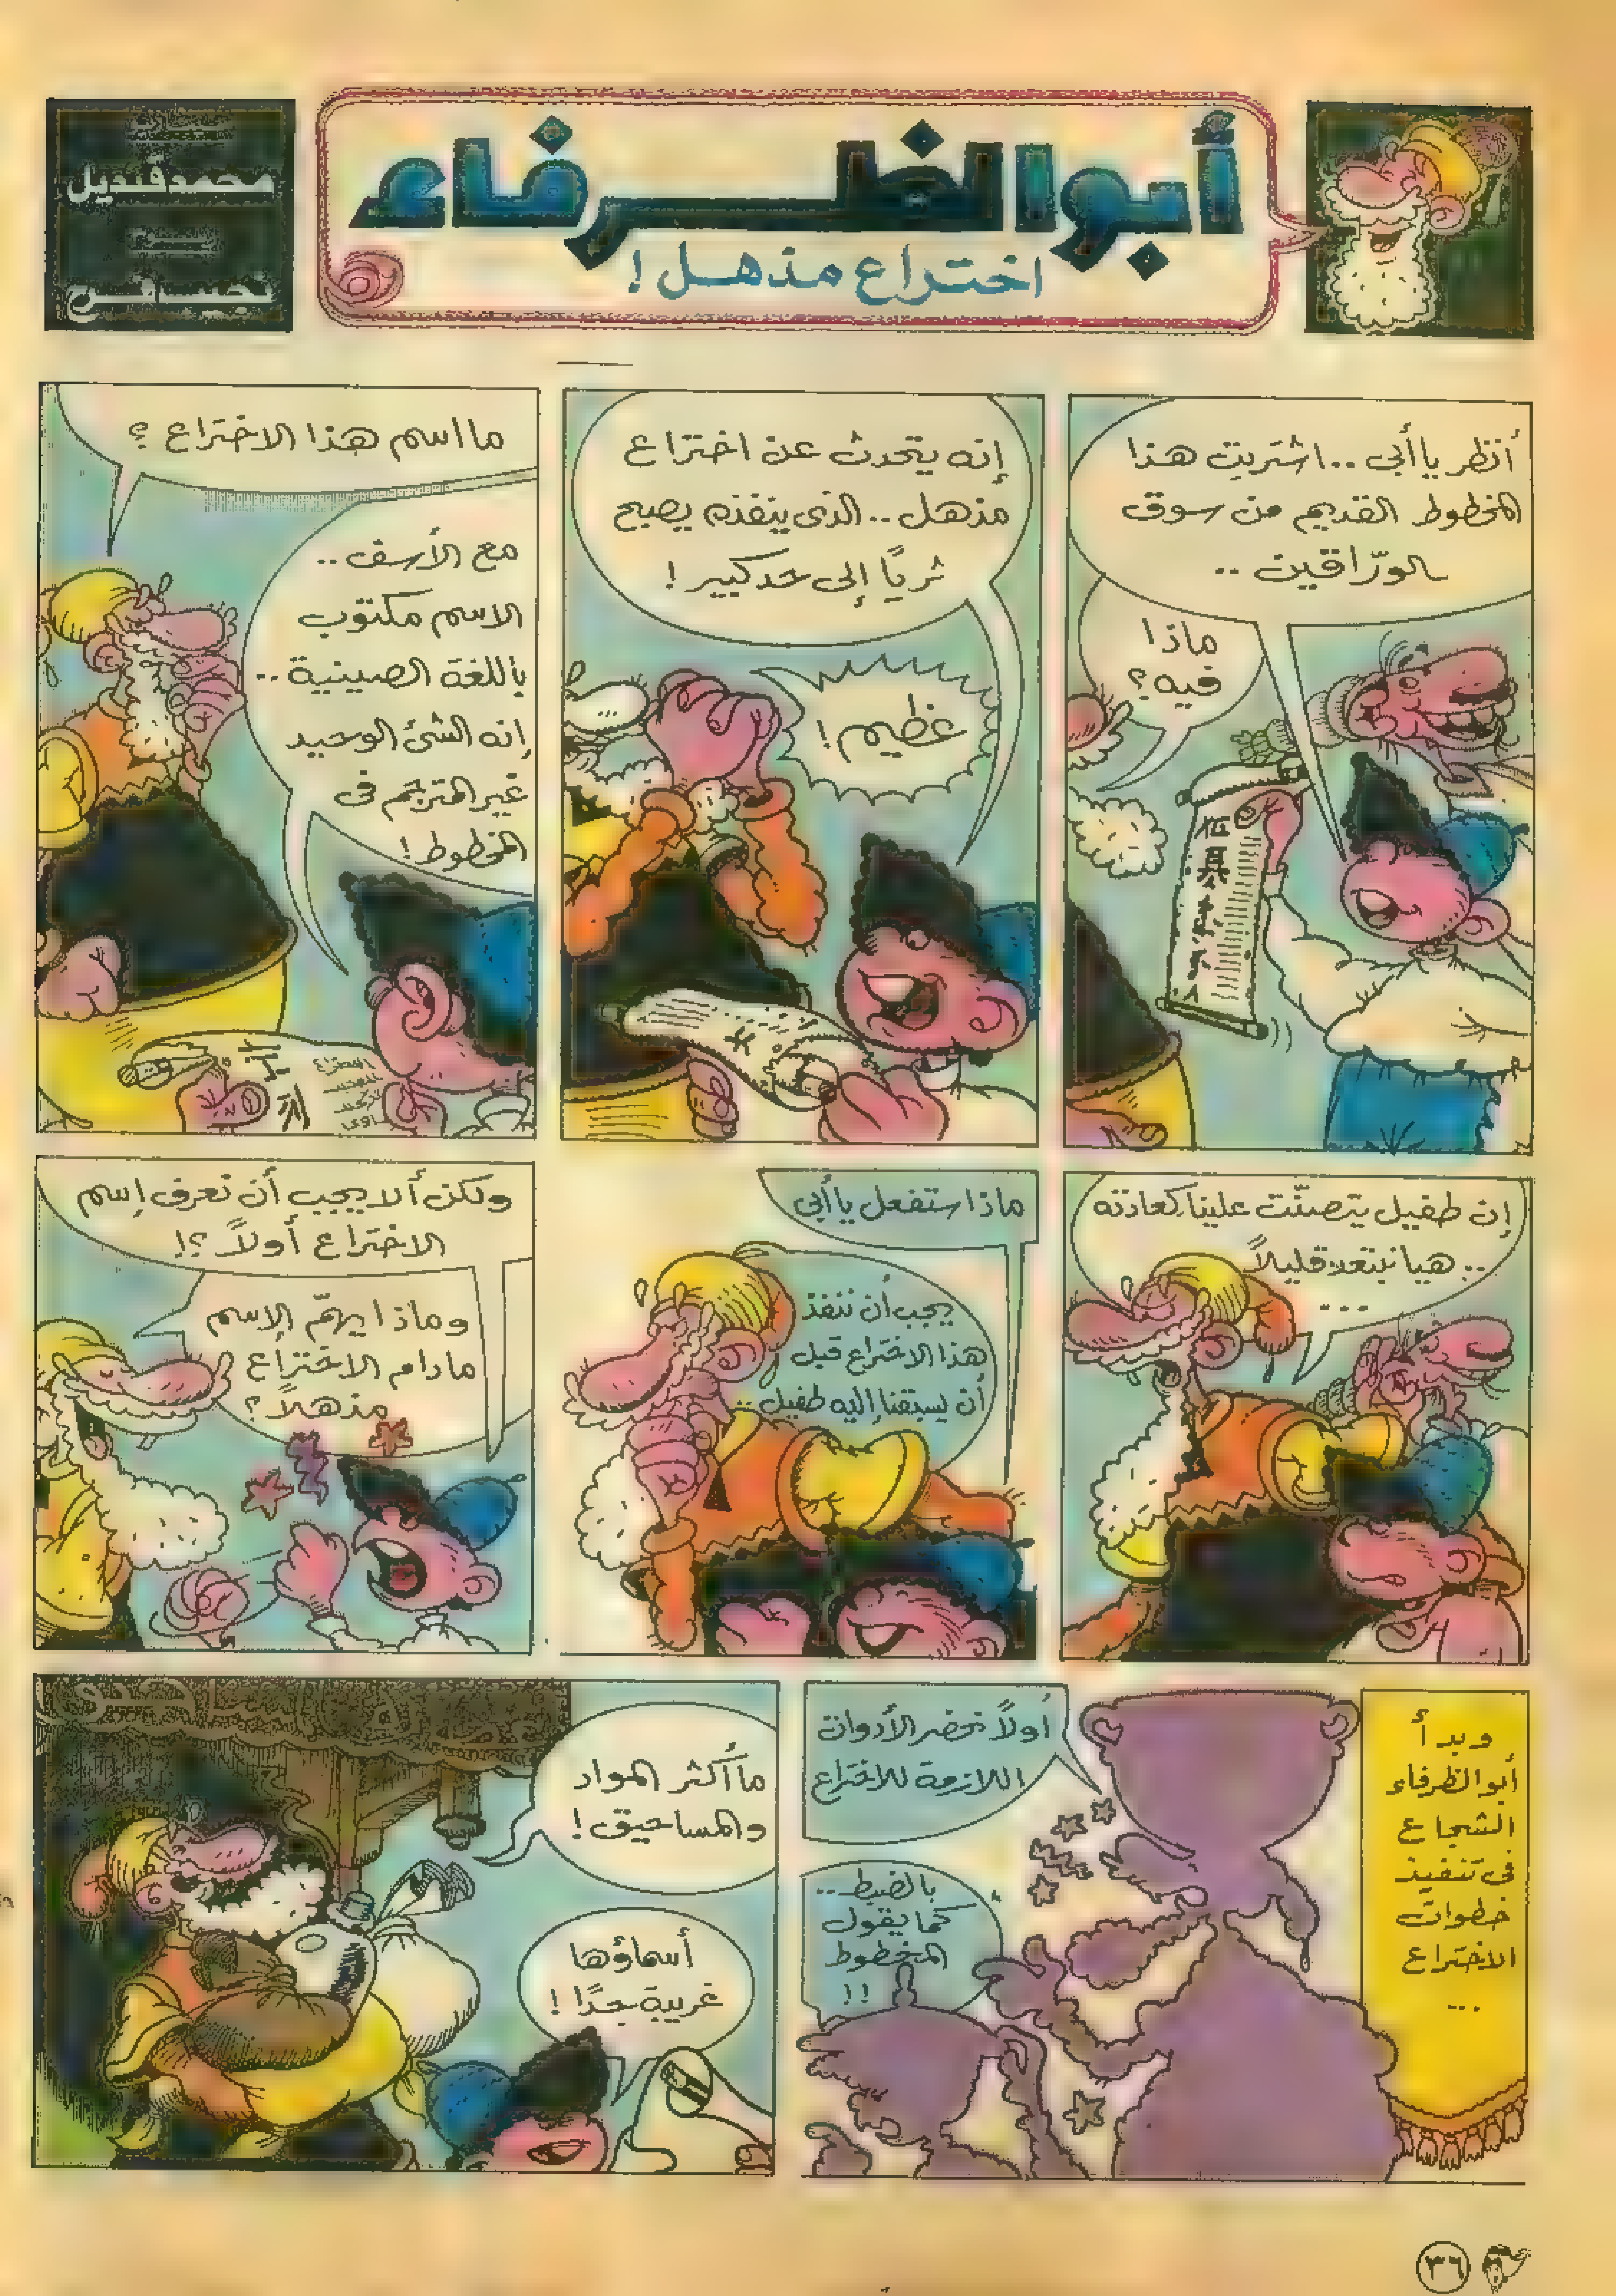 أبو الظرفاء
اختراع مذهل!
محمد قنديل
نجيب فرح
أنظر يا أبى .. اشتريت هذا
المخطوط القديم من سوق
الورّاقين ..
ماذا
فيه؟
إنه يتحدث عن اختراع
مذهل .. الذى ينفذه يصبح
ثريًا إلى حد كبير!
عظيم!
ما اسم هذا الاختراع؟
مع الأسف ..
الاسم مكتوب
باللغة الصينية ..
إنه الشئ الوحيد
غير المترجم فى
المخطوط!
إن طفيل يتصنّت علينا كعادته
.. هيا نبتعد قليلاً
...
ماذا ستفعل يا أبى
يجب أن ننفذ
هذا الاختراع قبل
أن يسبقنا إليه طفيل ..
ولكن ألا يجب أن نعرف إسم
الاختراع أولاً؟!
وماذا يهمّ الإسم
مادام الاختراع
مذهلاً؟
وبدأ
أبو الظرفاء
الشجاع
فى تنفيذ
خطوات
الاختراع
...
أولاً نحضر الأدوات
اللازمة للاختراع
بالضبط ..
كما يقول
المخطوط
!!
ما أكثر المواد
والمساحيق!
أسماؤها
غريبة جدًا!
٣٦